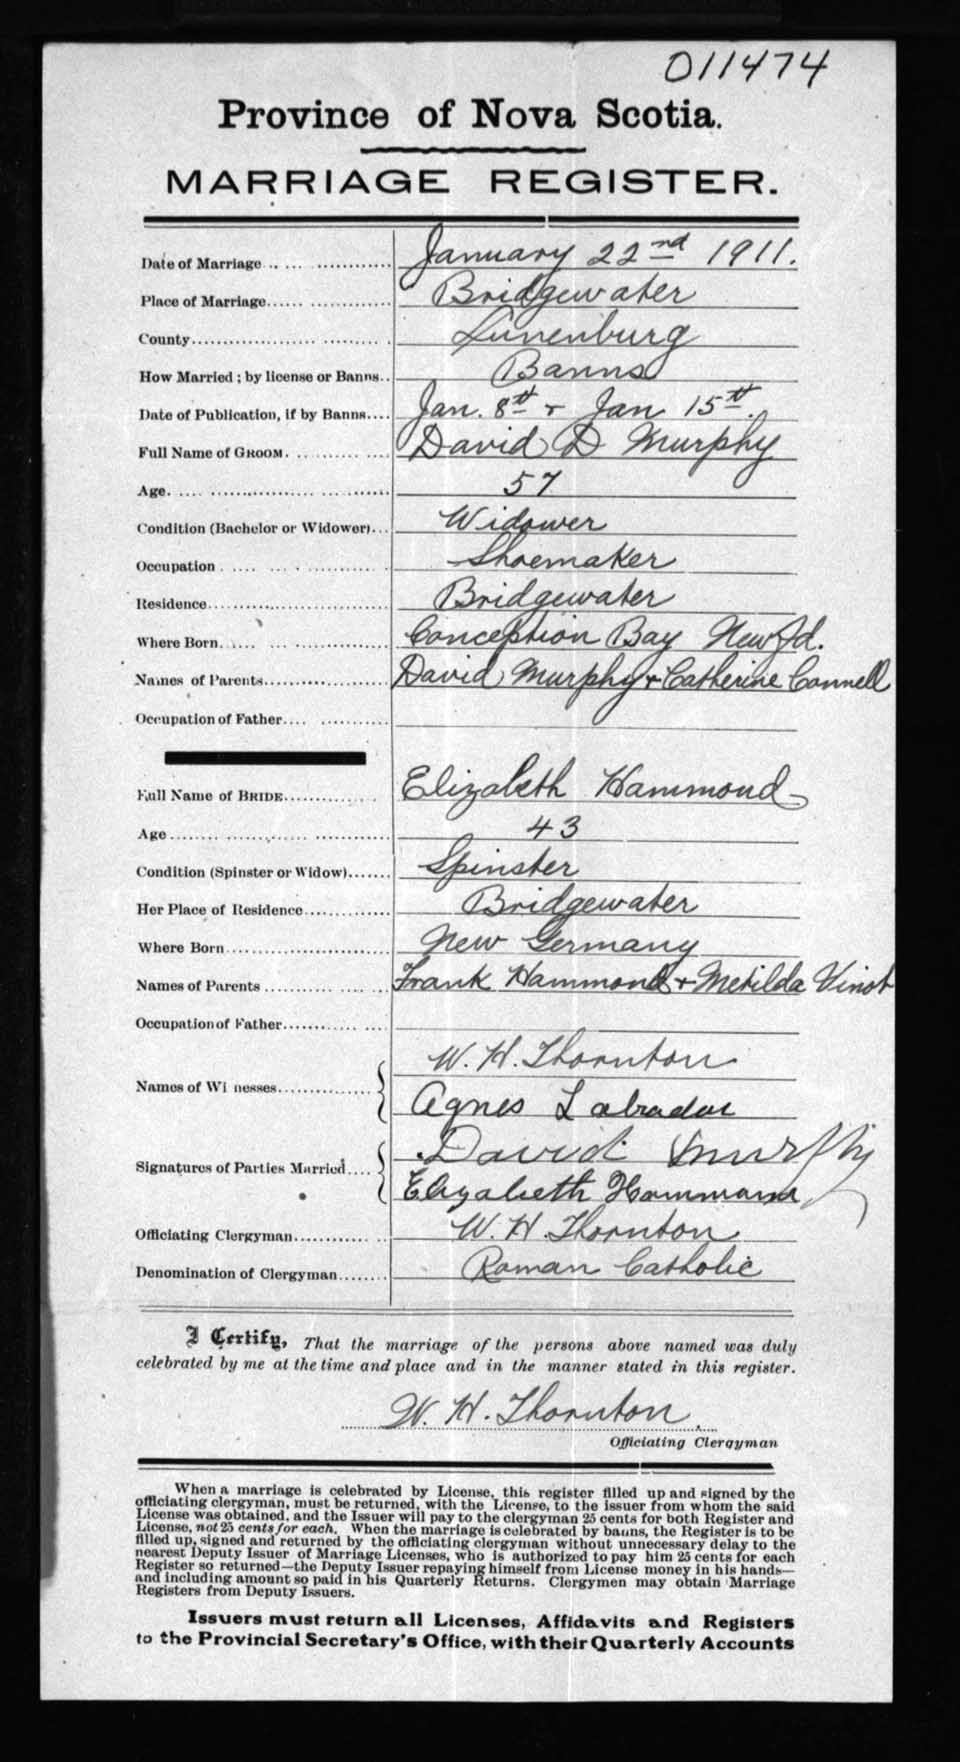 011474
Province of Nova Scotia.
MARRIAGE REGISTER.
Date of Marriage January 22nd 1911.
Place of Marriage Bridgewater
County Lunenburg
How Married; by license or Banns.. Banns
Date of Publication, if by Banns.... Jan. 8th & Jan 15th.
Full Name of GROOM. David D Murphy
Age. 57
Condition (Bachelor or Widower)... Widower
Occupation Shoemaker
Residence Bridgewater
Where Born Conception Bay Newfd.
Names of Parents David Murphy & Catherine Connell
Occupation of Father
Full Name of BRIDE Elizabeth Hammond
Age 43
Condition (Spinster or Widow) Spinster
Her Place of Residence Bridgewater
Where Born New Germany
Names of Parents Frank Hammond & Metilda Vinot
Occupation of Father
W. H. Thornton
Names of Wi nesses
Agnes Labrador
David Murphy
Signatures of Parties Married....
Elizabeth Hammond
Officiating Clergyman W. H. Thornton
Denomination of Clergyman Roman Catholic
I Certify, That the marriage of the persons above named was duly
celebrated by me at the time and place and in the manner stated in this register.
W. H. Thornton
Officiating Clergyman
When a marriage is celebrated by License, this register filled up and signed by the
officiating clergyman, must be returned, with the License, to the issuer from whom the said
License was obtained, and the Issuer will pay to the clergyman 25 cents for both Register and
License, not 25 cents for each. When the marriage is celebrated by banns, the Register is to be
filled up, signed and returned by the officiating clergyman without unnecessary delay to the
nearest Deputy Issuer of Marriage Licenses, who is authorized to pay him 25 cents for each
Register so returned—the Deputy Issuer repaying himself from License money in his hands—
and including amount so paid in his Quarterly Returns. Clergymen may obtain Marriage
Registers from Deputy Issuers.
Issuers must return all Licenses, Affidavits and Registers
to the Provincial Secretary's Office, with their Quarterly Accounts